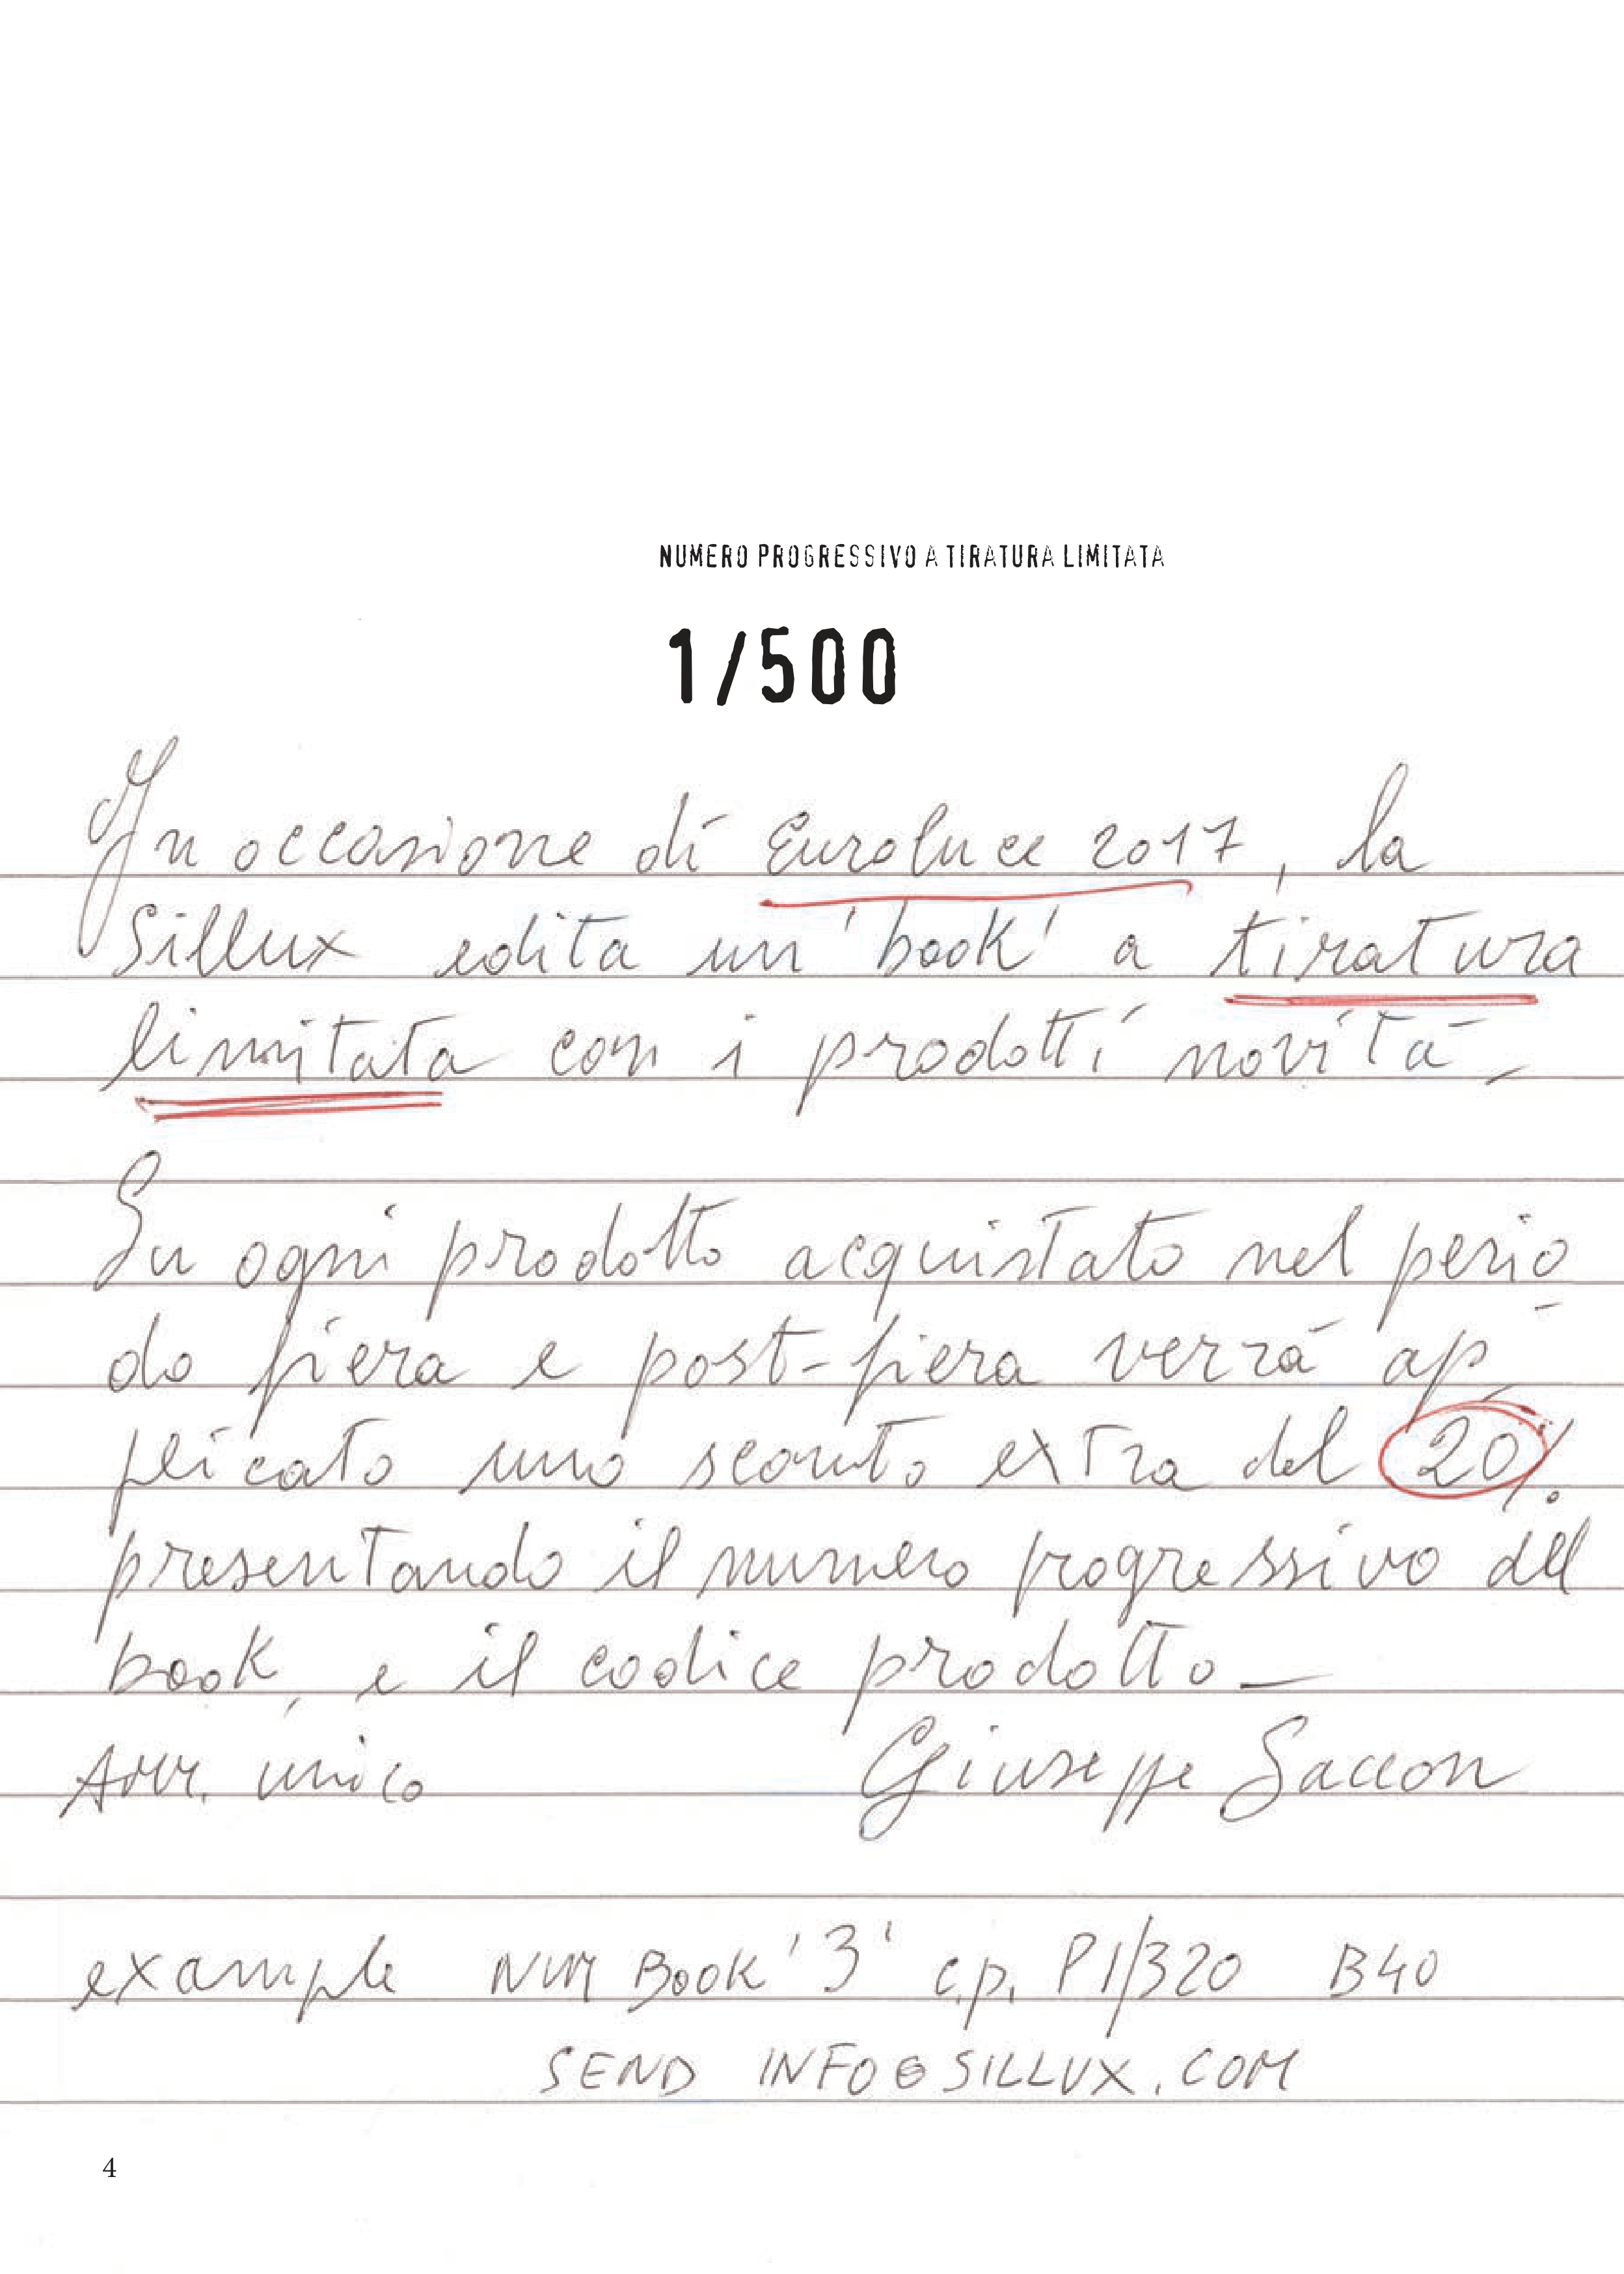 NUMERO PROGRESSIVO A TIRATURA LIMITATA
1/500
In occasione di Euroluce 2017, la
Sillux edita un 'book' a tiratura
limitata con i prodotti novità -
Su ogni prodotto acquistato nel perio
do fiera e post-fiera verrà ap
plicato uno sconto extra del 20%
presentando il numero progressivo del
book, e il codice prodotto -
Amm. unico Giuseppe Saccon
example NUM BOOK '3' c.p. P1/320 B40
SEND INFO@SILLUX.COM
4